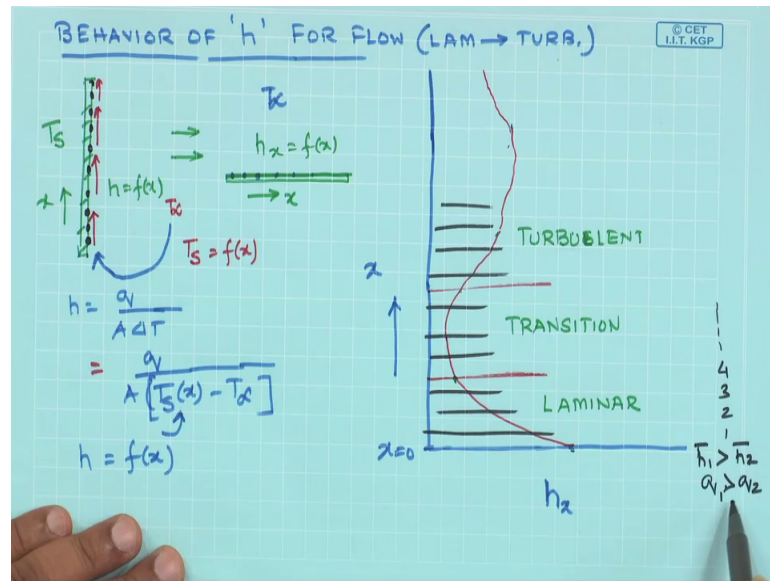 BEHAVIOR OF 'h' FOR FLOW (LAM → TURB.)
© CET
I.I.T. KGP
T∝
Ts
h=f(x)
x
T∝
Ts = f(x)
hx = f(x)
→ x
h = q / AΔT
= q / A[Ts(x) - T∝]
h = f(x)
x
x=0
TURBUELENT
TRANSITION
LAMINAR
hx
4
3
2
1
h̄1 > h̄2
q1 > q2